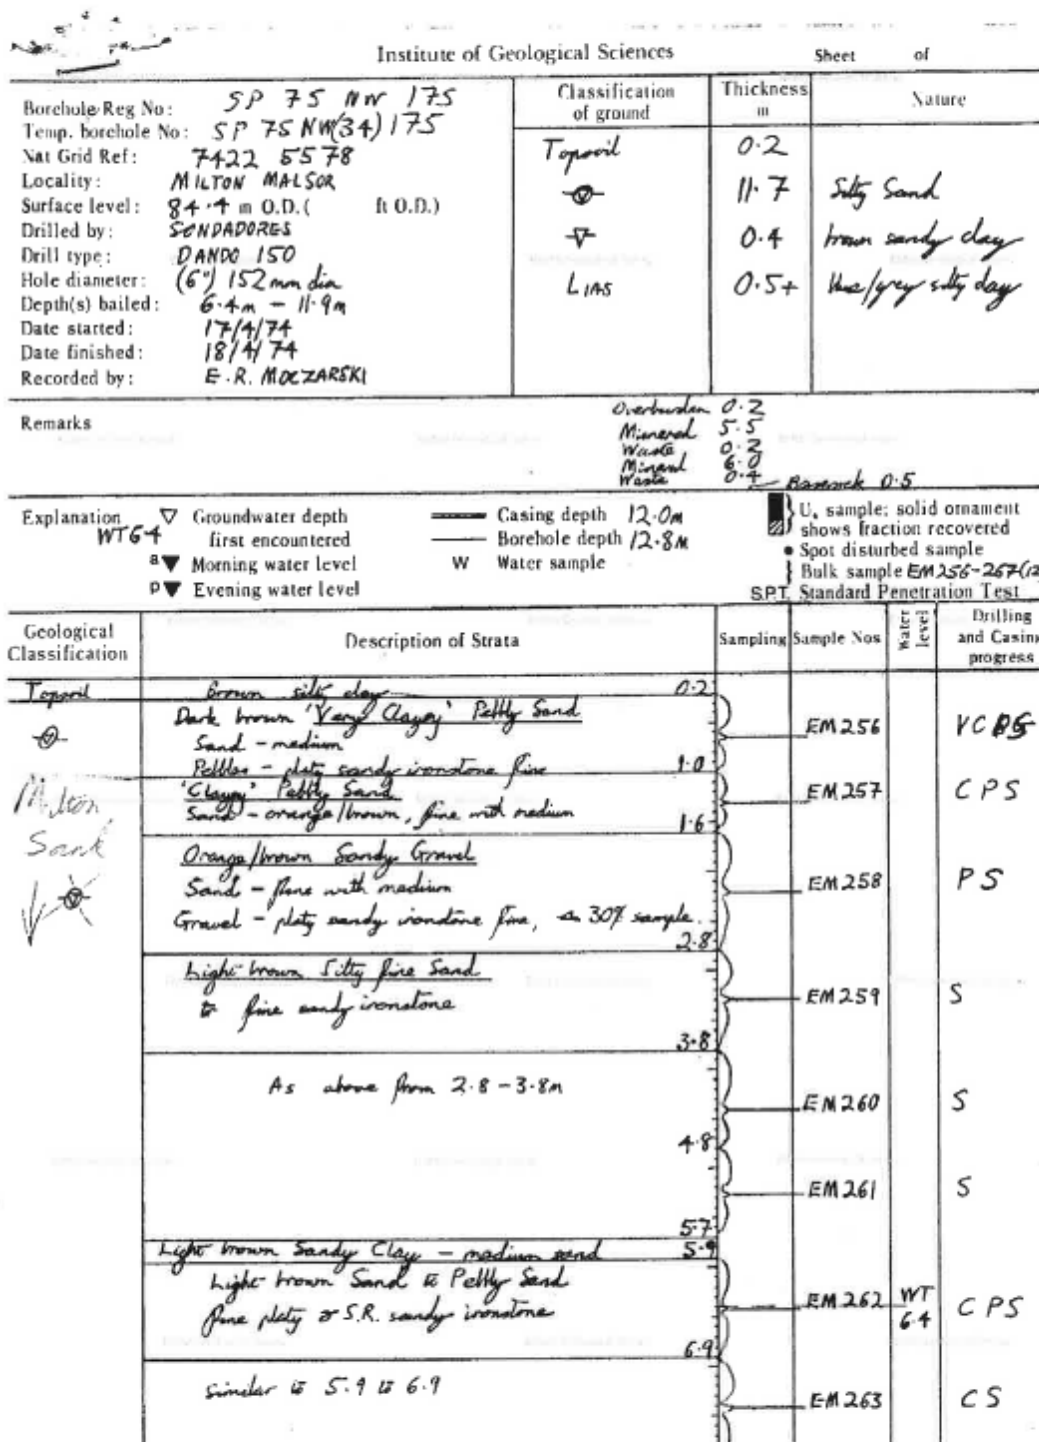 Institute of Geological Sciences Sheet of
Borehole Reg No: SP 75 NW 175
Temp. borehole No: SP 75 NW(34) 175
Nat Grid Ref: 7422 5578
Locality: MILTON MALSOR
Surface level: 84.4 m O.D.( ft O.D.)
Drilled by: SONDADORES
Drill type: DANDO 150
Hole diameter: (6") 152mm dia
Depth(s) bailed: 6.4m - 11.9m
Date started: 17/4/74
Date finished: 18/4/74
Recorded by: E.R. MOCZARSKI
Classification of ground Thickness m Nature
Topsoil 0.2
11.7 Silty Sand
0.4 brown sandy clay
LIAS 0.5+ blue/grey silty clay
Remarks
Overburden 0.2
Mineral 5.5
Waste 0.2
Mineral 6.0
Waste 0.4 Bedrock 0.5
Explanation ▽ Groundwater depth first encountered
WT 6.4
a▼ Morning water level
p▼ Evening water level
Casing depth 12.0m
Borehole depth 12.8m
W Water sample
U. sample; solid ornament
shows fraction recovered
● Spot disturbed sample
Bulk sample EM256-267(12
S.P.T. Standard Penetration Test
Geological Classification Description of Strata Sampling Sample Nos Water level Drilling and Casing progress
Topsoil Brown silty clay 0.2
Dark brown 'Very Clayey' Pebbly Sand
Sand - medium EM256
Pebbles - platy sandy ironstone fine 1.0
'Clayey' Pebbly Sand EM257 CPS
Sand - orange/brown, fine with medium 1.6
Milton Sand
Orange/brown Sandy Gravel
Sand - fine with medium EM258 PS
Gravel - platy sandy ironstone fine, 30% sample. 2.8
Light brown Silty fine Sand
tr fine sandy ironstone EM259 S
3.8
As above from 2.8-3.8m EM260 S
4.8
EM261 S
5.7
Light brown Sandy Clay - medium sand 5.9
Light brown Sand to Pebbly Sand EM262 WT 6.4 CPS
fine platy & S.R. sandy ironstone
6.9
Similar to 5.9 to 6.9 EM263 CS